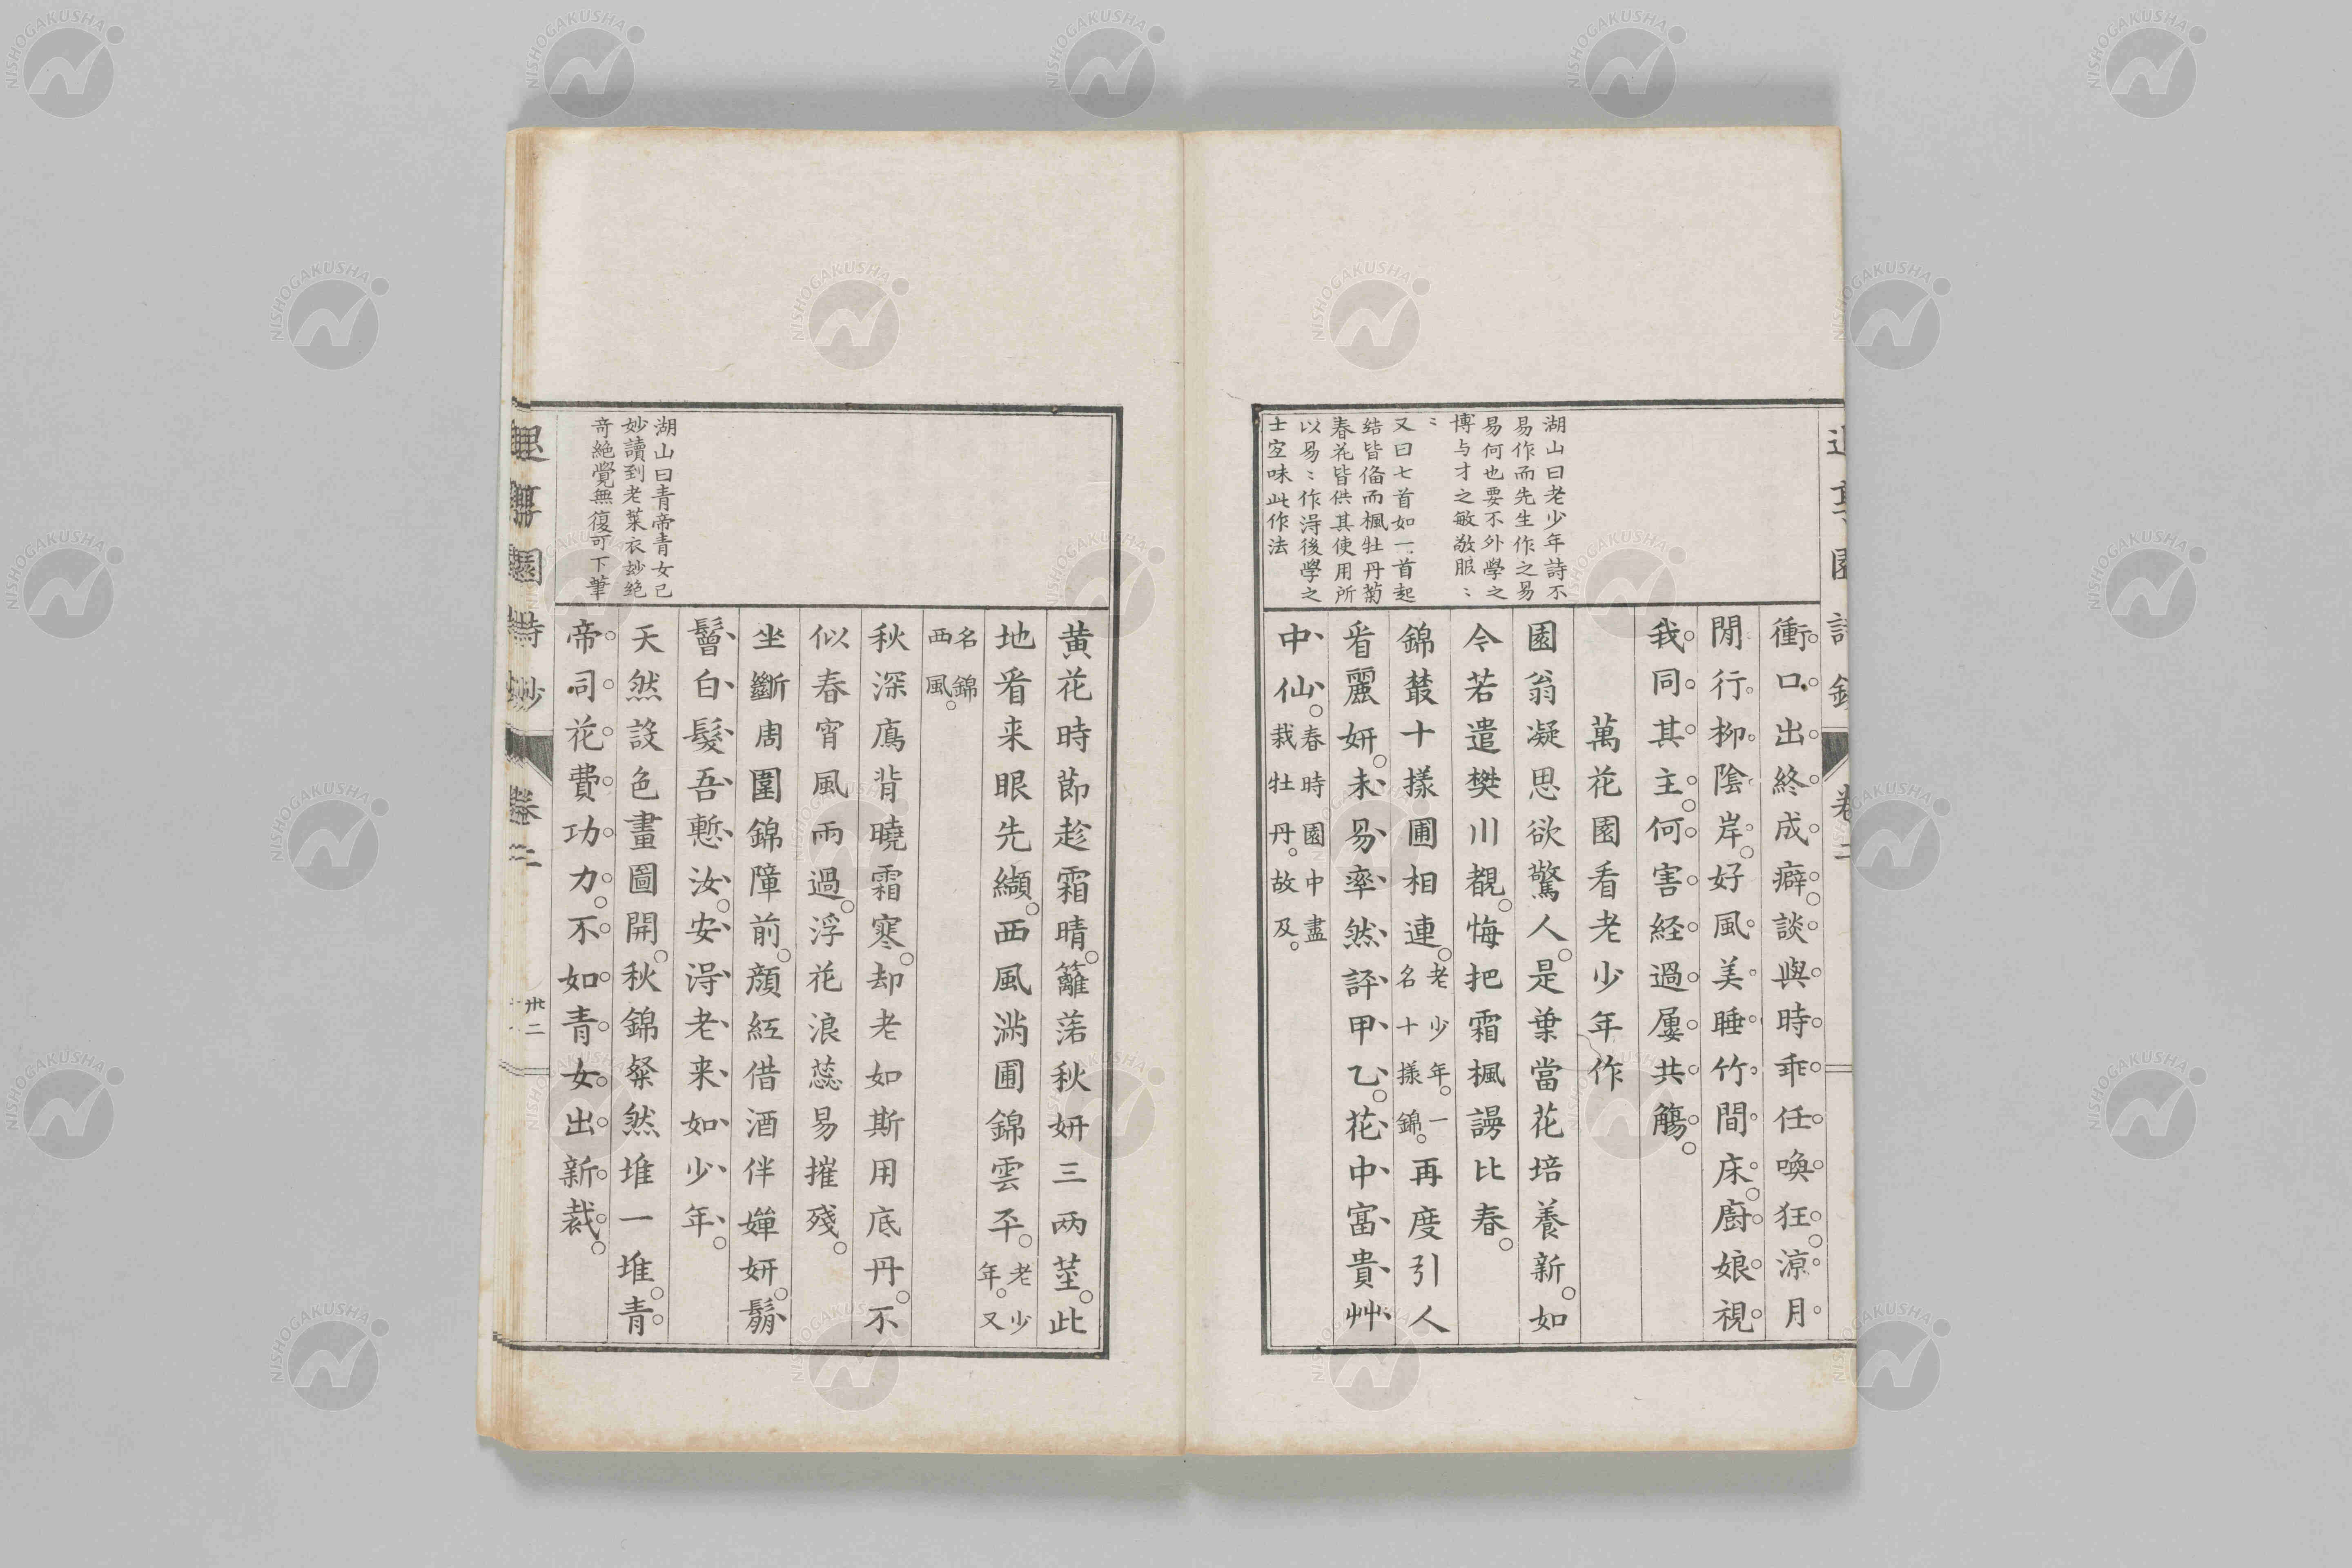 湖山曰老少年詩不
易作而先生作之易
易何也要不外學之
博与才之敏敬服〻
〻
又曰七首如一首起
结皆俻而楓牡丹菊
春花皆供其使用所
以易〻作淂後學之
士空味此作法
衝口出終成癖談與時乖任喚狂涼月
閒行柳陰岸好風美睡竹間床廚娘視
我同其主何害経過屢共觴
萬花園看老少年作
園翁凝思欲驚人是葉當花培養新如
令若遣樊川覩悔把霜楓謾比春
錦叢十㨾圃相連老少年一名十㨾錦再度引人
看麗妍未易率然評甲乙花中富貴艸
中仙春時園中盡栽牡丹故及
湖山曰青帝青女已
妙讀到老葉衣玅絶
奇絶覺無復可下筆
黄花時節趁霜晴籬落秋妍三两莖此
地看来眼先纈西風滿圃錦雲平老少年又
名錦西風
秋深鴈背曉霜寒却老如斯用底丹不
似春宵風雨過浮花浪蕊易摧殘
坐斷周圍錦障前顔紅借酒伴嬋妍鬅
鬙白髮吾慙汝安淂老来如少年
天然設色畫圖開秋錦粲然堆一堆青
帝司花費功力不如青女出新裁
園詩鈔
卷二
卅二
NISHOGAKUSHA